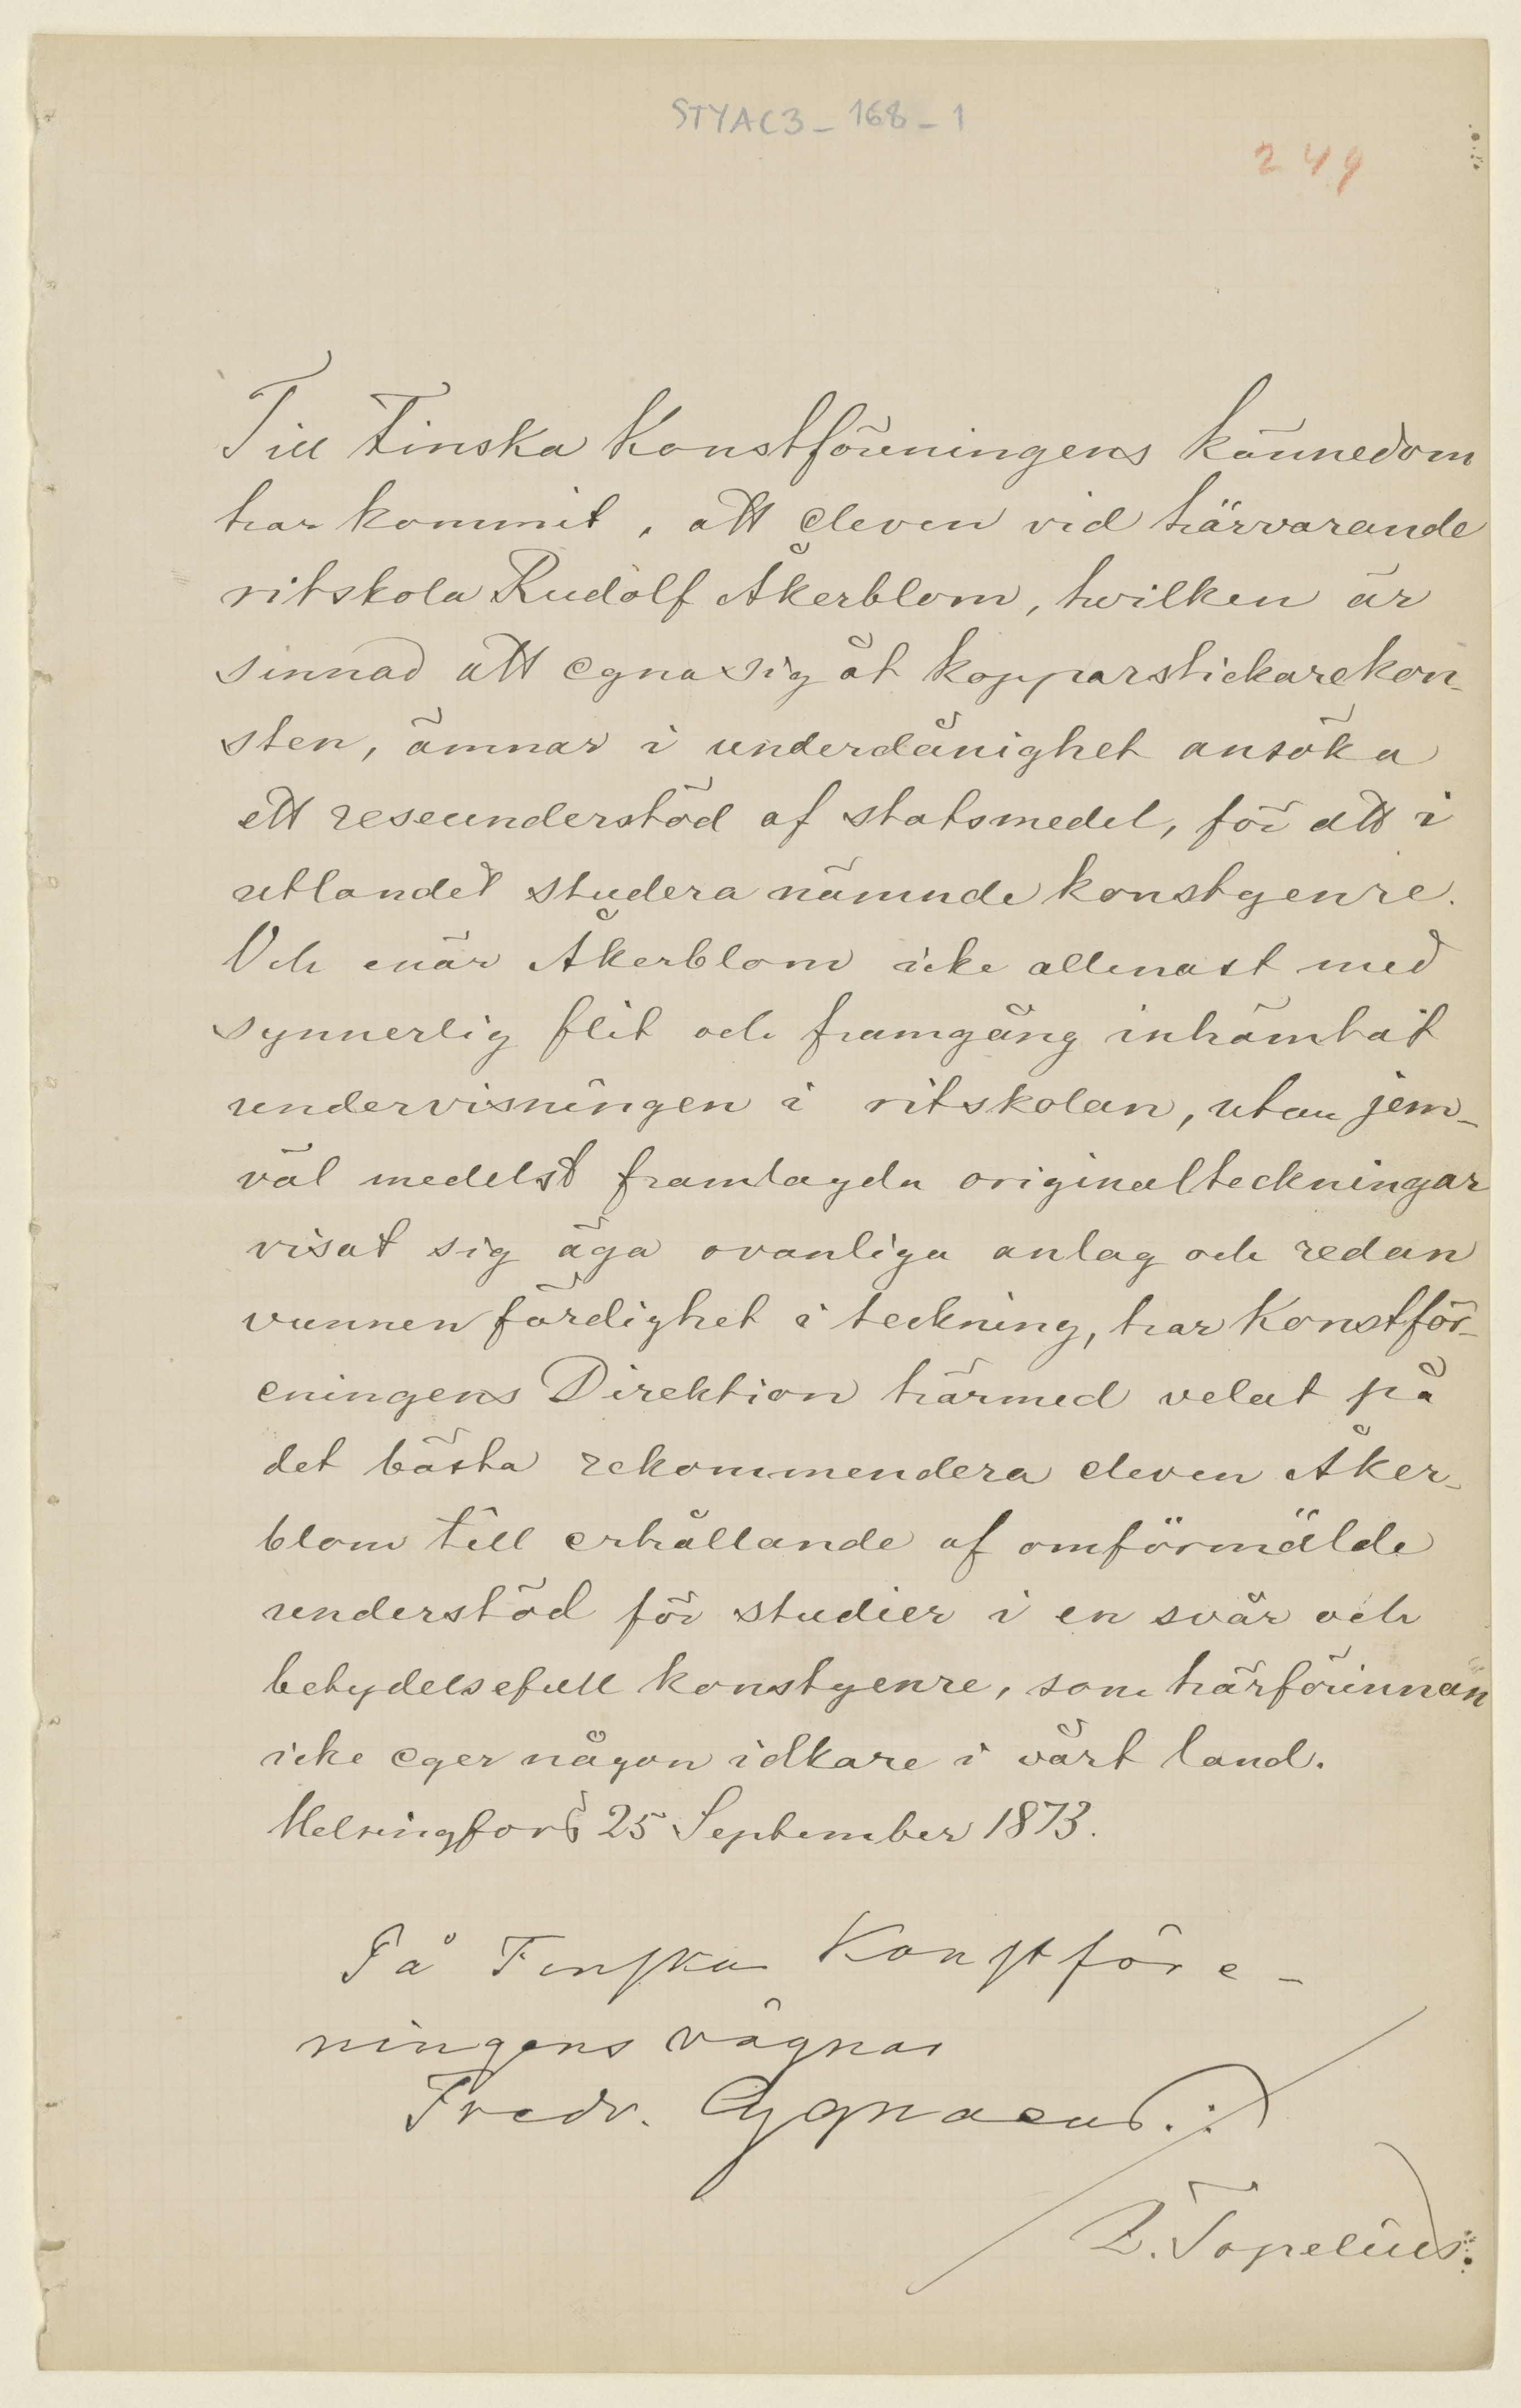 STYAC3_168_1
249
Till Finska Konstföreningens kännedom
har kommit, att eleven vid härvarande
ritskola Rudolf Åkerblom, hvilken är
sinnad att egna sig åt kopparstickarekon-
sten, ämnar i underdånighet ansöka
ett reseunderstöd af statsmedel, för att i
utlandet studera nämnde konstgenre.
Och enär Åkerblom icke allenast med
synnerlig flit och framgång inhämtat
undervisningen i ritskolan, utan jem-
väl medelst framlagda originalteckningar
visat sig äga ovanliga anlag och redan
vunnen färdighet i teckning, har Konstför-
eningens Direktion härmed velat på
det bästa rekommendera eleven Åker-
blom till erhållande af omförmälde
understöd för studier i en svår och
betydelsefull konstgenre, som härförinnan
icke eger någon idkare i vårt land.
Helsingfors 25 September 1873.
På Finska Konstföre-
ningens vägnar
Fredr. Cygnaeus.
Z. Topelius.